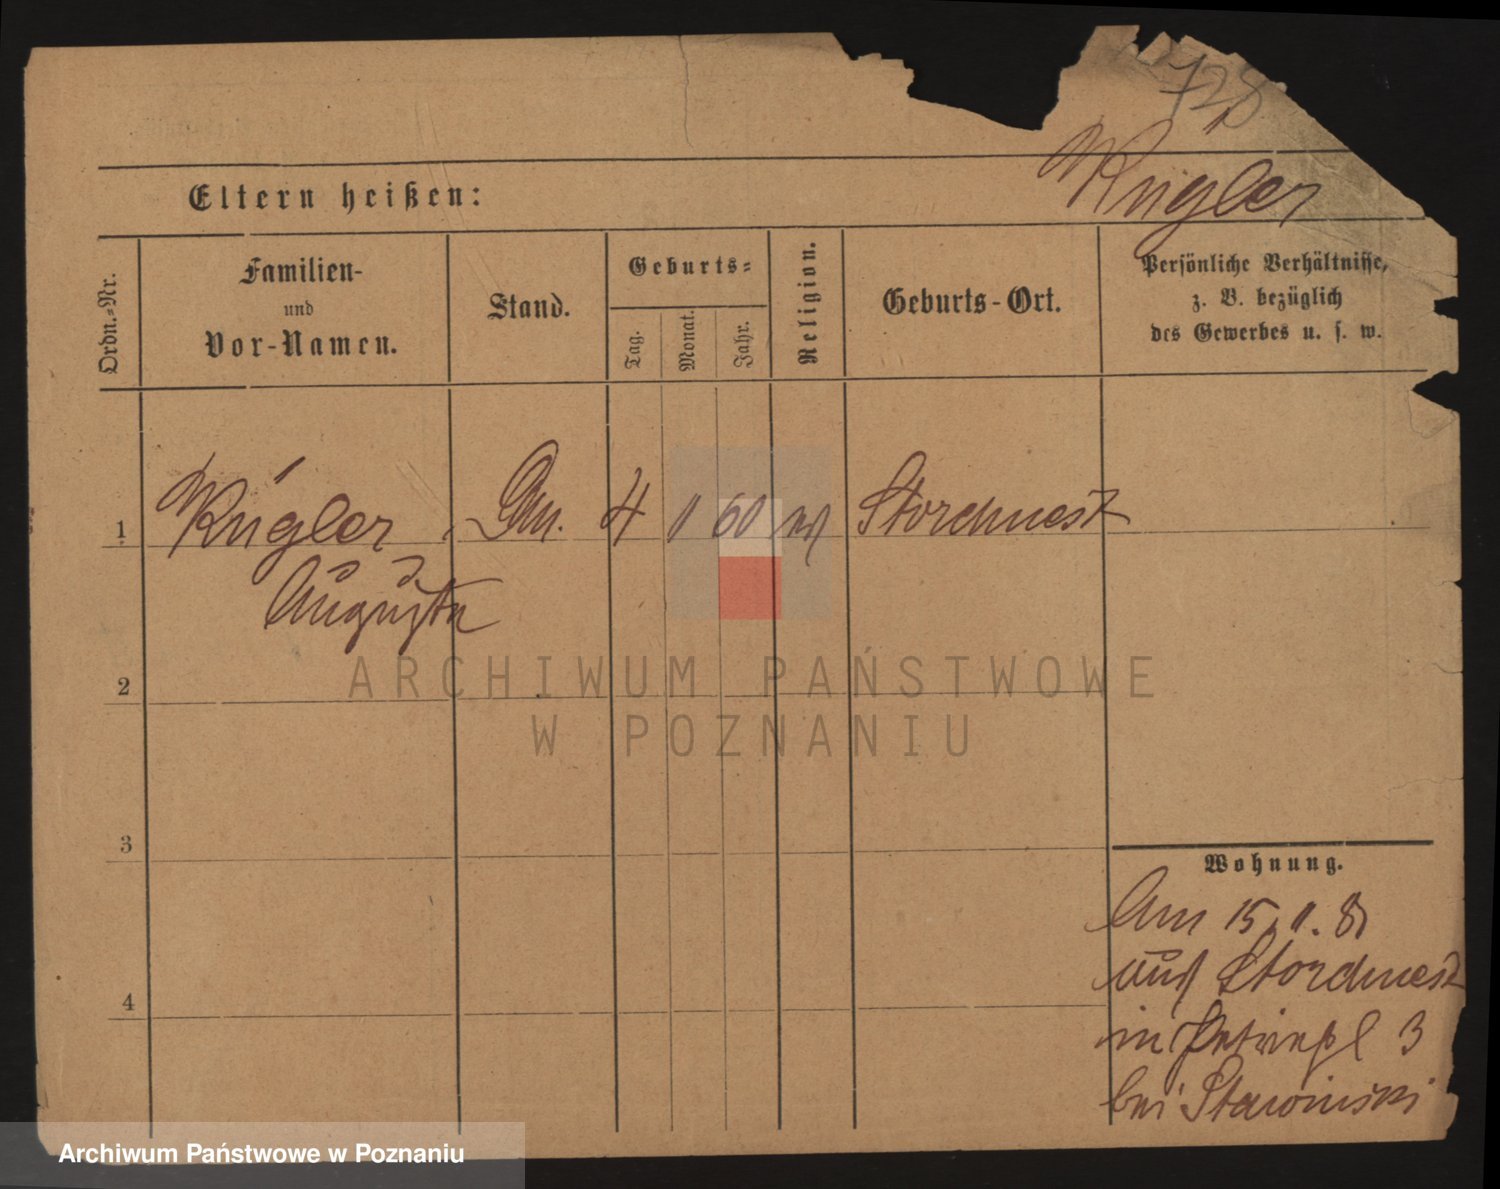 728
Kugler
Eltern heißen:
Ordn.-Nr.
Familien-
und
Vor-Namen.
Stand.
Geburts-
Tag.
Monat.
Jahr.
Religion.
Geburts-Ort.
Persönliche Verhältnisse,
z. B. bezüglich
des Gewerbes u. s. w.
1 Kugler 4 11 60 Storchnest
Auguste
2
ARCHIWUM PAŃSTWOWE
W POZNANIU
3
4
Wohnung.
Am 15. 11. 81
aus Storchnest
in Petripl 3
bei Stawinski
Archiwum Państwowe w Poznaniu